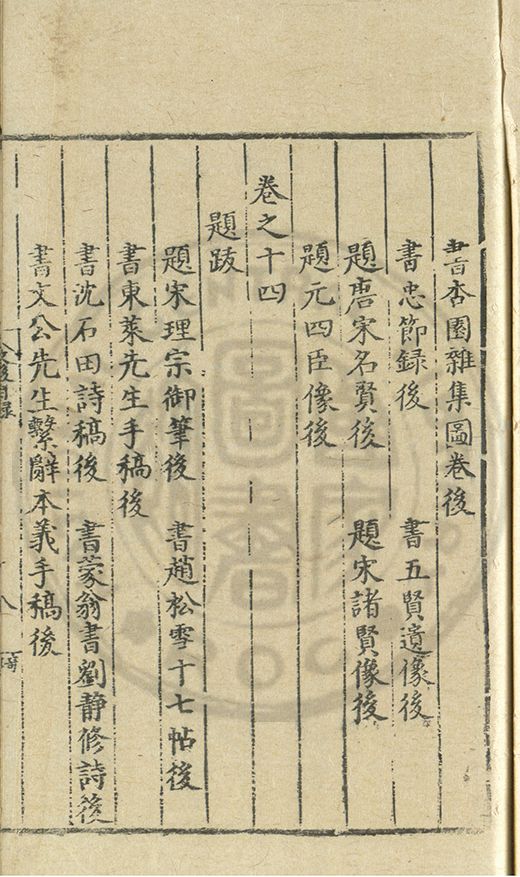 書杏園雜集圖卷後
書忠節録後 書五賢遺像後
題唐宋名賢後 題宋諸賢像後
題元四臣像後
卷之十四
題跋
題宋理宗御筆後 書趙松雪十七帖後
書東萊先生手稿後
書沈石田詩稿後 書蒙翁書劉静修詩後
書文公先生繫辭本義手稿後
八